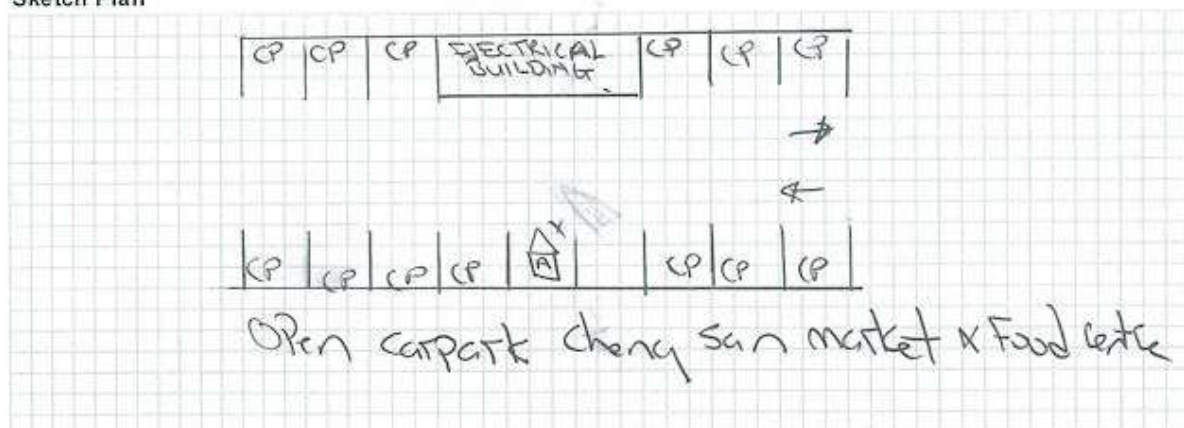 Sketch Plan
CP CP CP ELECTRICAL BUILDING CP CP CP
CP CP CP CP A CP CP CP
Open carpark cheng san market x Food centre